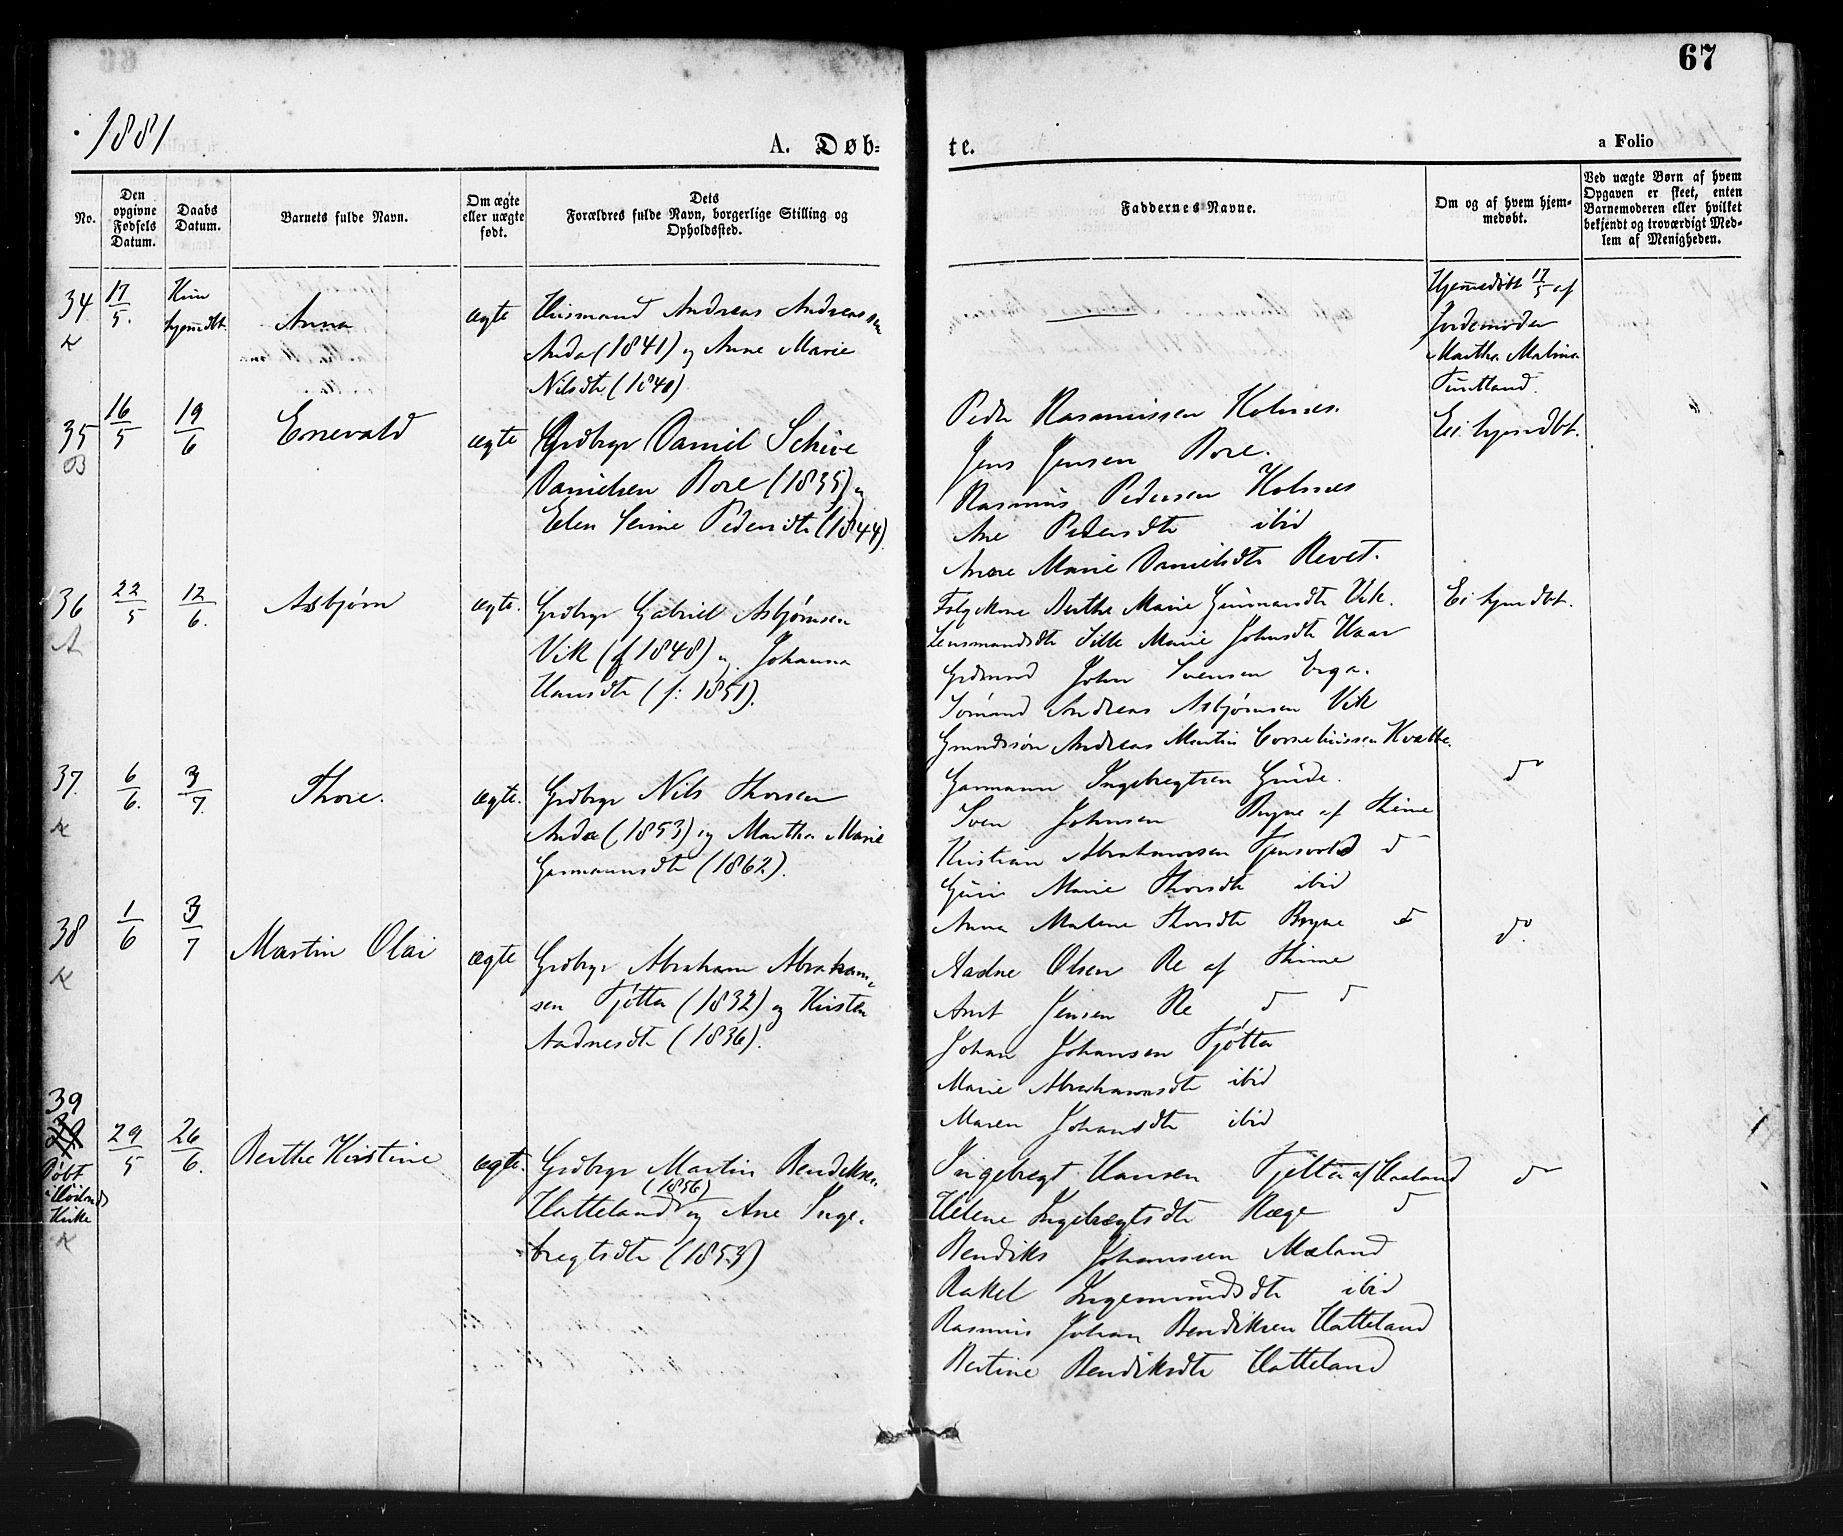 67
1881
A. Døb-
te.
a Folio
No.
Den opgivne Fødsels Datum.
Daabs Datum.
Barnets fulde Navn.
Om ægte eller uægte født.
Dets Forældres fulde Navn, borgerlige Stilling og Opholdssted.
Faddernes Navne.
Om og af hvem hjemmedøbt.
Ved uægte Børn af hvem Opgaven er skeet, enten Barnemoderen eller hvilket bekjendt og troværdigt Medlem af Menigheden.
34
17/5.
Kun hjemdbt.
Anna
ægte
Husmand Andreas Andreassen
Anda (1841) og Anne Marie
Nilsdtr (1840)
Hjemmedøbt 17/5 af
Jordemoder
Martha Malina
Tuntland.
35
16/5
19/6
Enevald
ægte
Grdbrgr Daniel Schive
Danielsen Bore (1835) og
Elen Serine Pedersdtr (1844).
Peder Rasmussen Holnes.
Jens Jensen Bore.
Rasmus Pedersen Holnes
Ane Pedersdtr ibid
Anne Marie Danielsdtr Revet.
Ei hjemdbt.
36
22/5
12/6.
Asbjørn
ægte.
Grdbrgr Gabriel Asbjørnsen
Vik (f 1848) og Johanna
Hansdtr (f: 1851).
Folgekone Berthe Marie Gunnarsdtr Vik.
Lensmandsdtr Sille Marie Johnsdtr Haar
Grdmand John Svensen Erga.
Sømand Andreas Asbjørnsen Vik
Grmandssøn Andreas Martin Corneliussen Kvalbe.
Ei hjemdbt.
37.
6/6.
3/7.
Thore.
ægte.
Grdbrgr Nils Thorsen
Anda (1853) og Martha Marie
Garmannsdtr (1862).
Garmann Ingebregtsen Grude.
Sven Johnsen Bryne af Thime
Kristian Abrahamsen Fjensvold d
Guri Marie Thorsdtr ibid
Anna Malene Thorsdtr Bryne d
do
38
1/6
3/7
Martin Olai
ægte
Grdbrgr Abraham Abraham-
sen Tjøtta (1832) og Kirsten
Aadnesdtr (1836).
Aadne Olsen Re af Thime
Arnt Jensen Re d d
Johan Johansen Tjøtta
Marie Abrahamsdtr ibid
Maren Johansdtr ibid
do.
39
Døbt
i Høilands
Kirke
29/5
26/6.
Berthe Kirstine
ægte.
Grdbrgr Martin Bendiksen
Hatteland (1856) og Ane Inge-
bregtsdtr (1853)
Ingebregt Hansen Tjøtta af Haaland
Helene Ingebregtsdtr Ræge d
Bendiks Johansen Mæland
Rakel Ingemundsdtr ibid
Rasmus Johan Bendiksen Hatteland
Bertine Bendiksdtr Hatteland
do